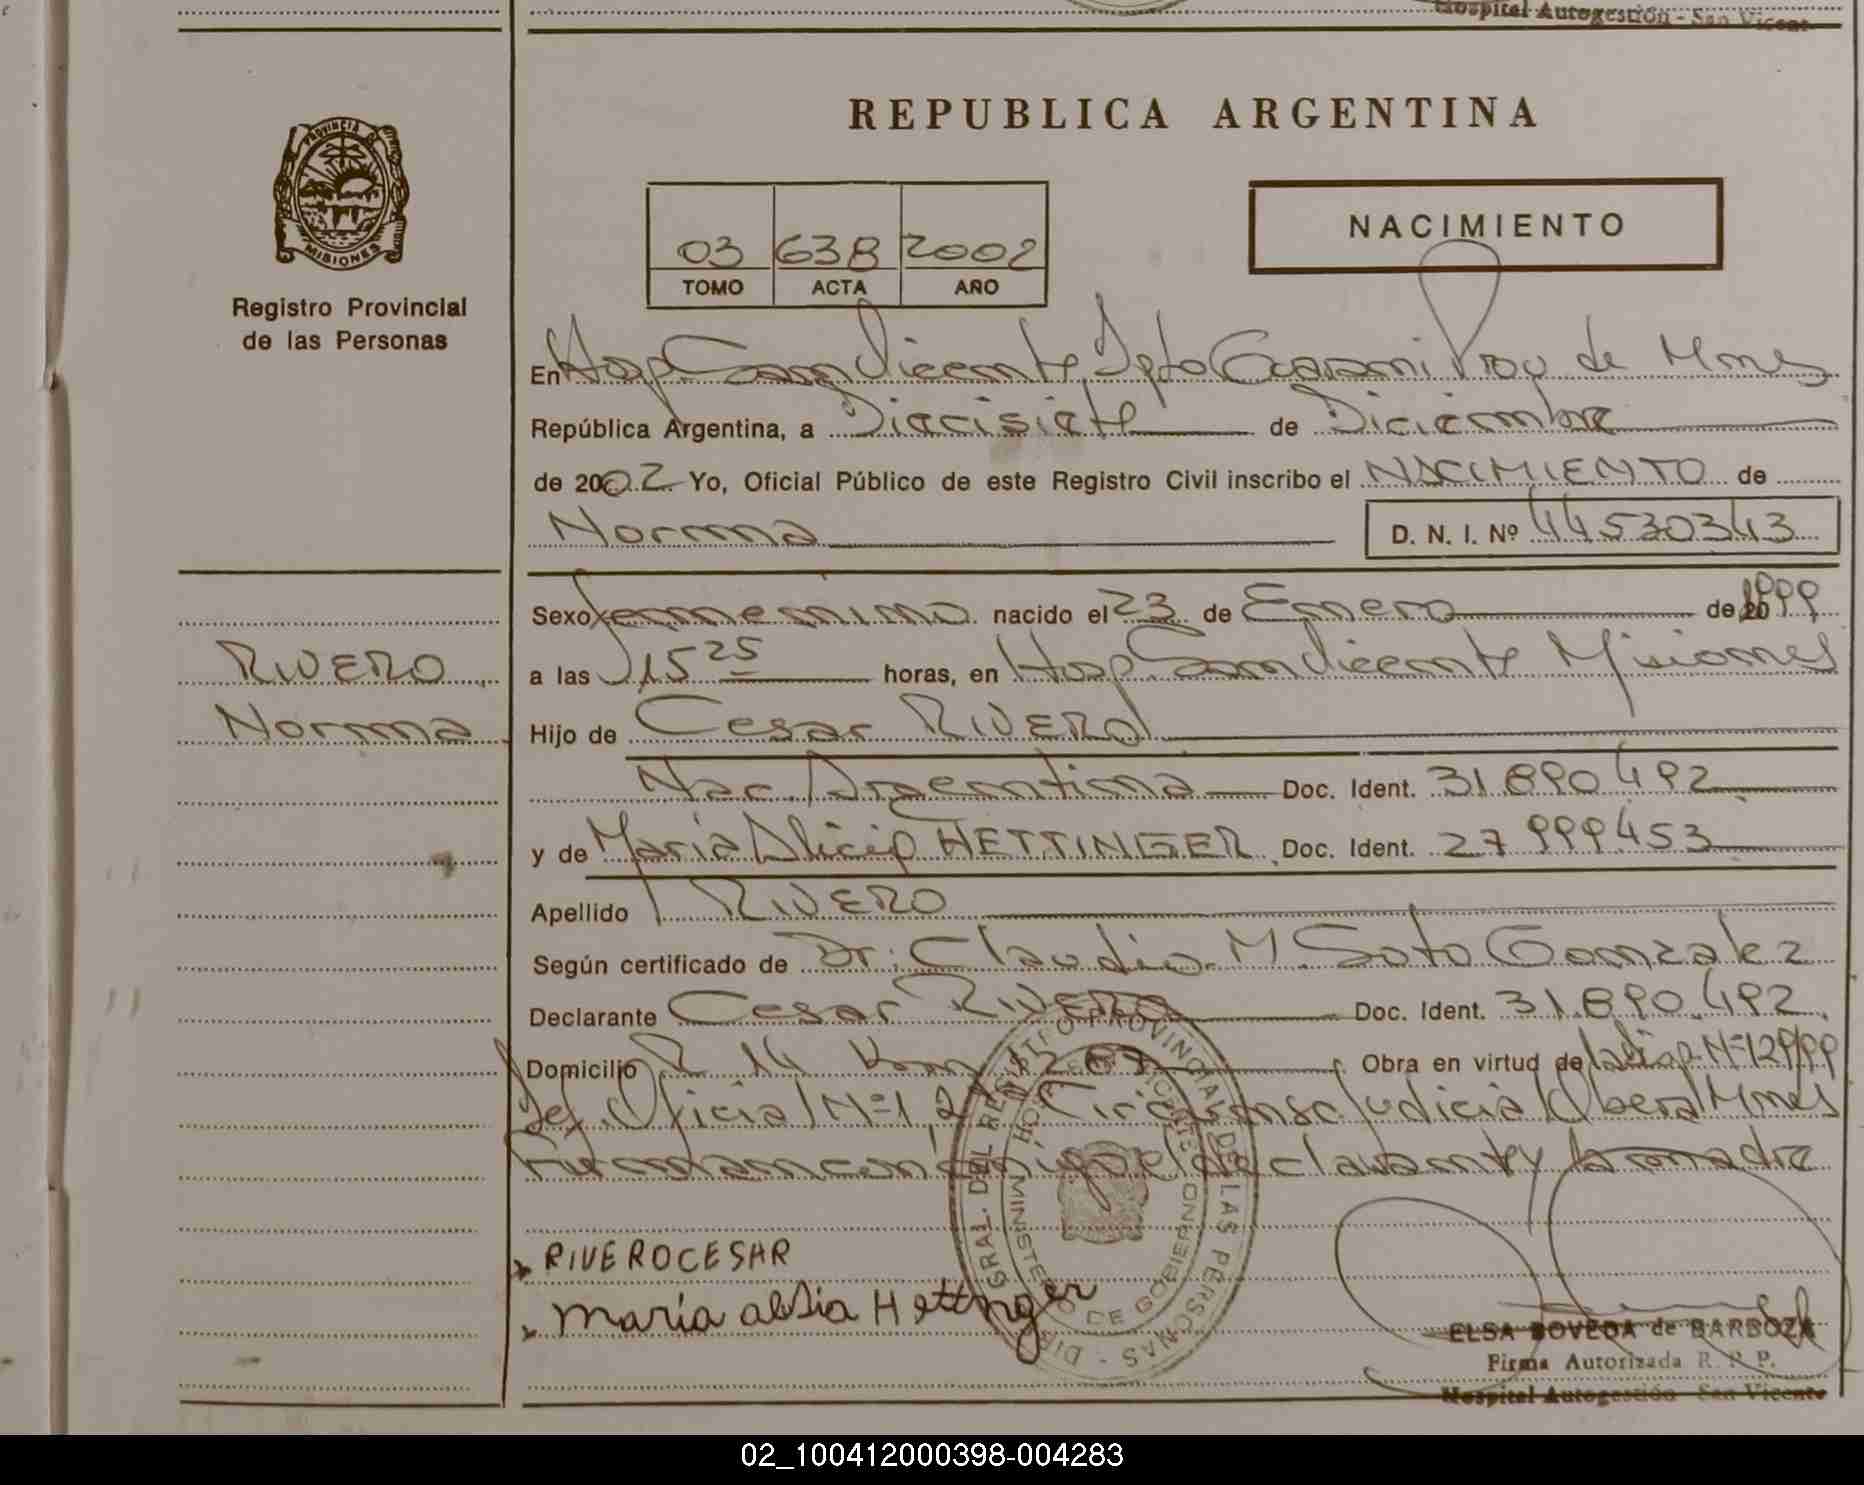 Hospital Autogestión - San Vicente
PROVINCIA DE
MISIONES
Registro Provincial
de las Personas
REPUBLICA ARGENTINA
03 638 2002
TOMO ACTA AÑO
NACIMIENTO
En Hosp San Vicente, Dpto Guarani Prov de Mnes
República Argentina, a Diecisiete de Diciembre
de 2002 Yo, Oficial Público de este Registro Civil inscribo el NACIMIENTO de
Norma D. N. I. Nº 44530343
Sexo femenino nacido el 23 de Enero de 1999
RIVERO
a las 15 25 horas, en Hosp San Vicente Misiones
Norma
Hijo de Cesar RIVERO
Nac. Argentina Doc. Ident. 31.890.492
y de Maria Alicia HETTINGER Doc. Ident. 27.999.453
Apellido RIVERO
Según certificado de Dr. Claudio M. Soto Gonzalez
Declarante Cesar RIVERO Doc. Ident. 31.890.492
Domicilio R 14 Km 1267 Obra en virtud de
Def. Oficial Nº 1, 2º Circunsc. Judicial Obera Mnes
Firman conmigo el declarante y la madre
DIR. GRAL. DEL REGISTRO PROVINCIAL DE LAS PERSONAS
MINISTERIO DE GOBIERNO
RIVERO CESAR
maria alisia Hettnger
ELSA BOVEDA de BARBOZA
Firma Autorizada R. P. P.
Hospital Autogestión San Vicente
02_100412000398-004283